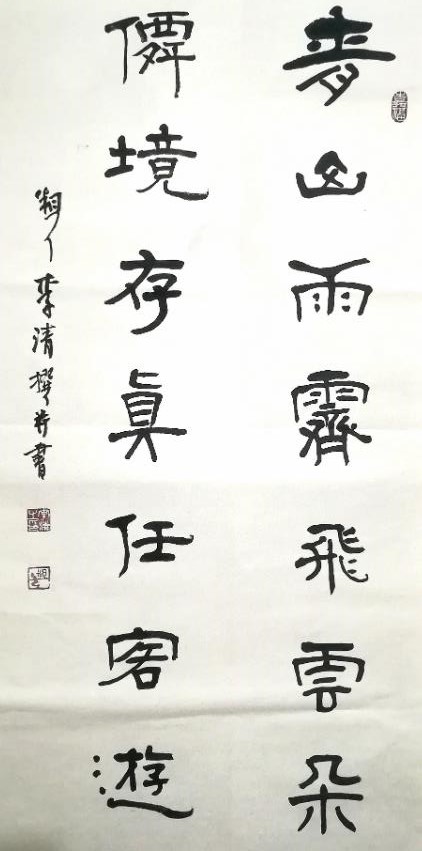 青山雨霽飛雲朵
僊境存真任客遊
李清撰并書